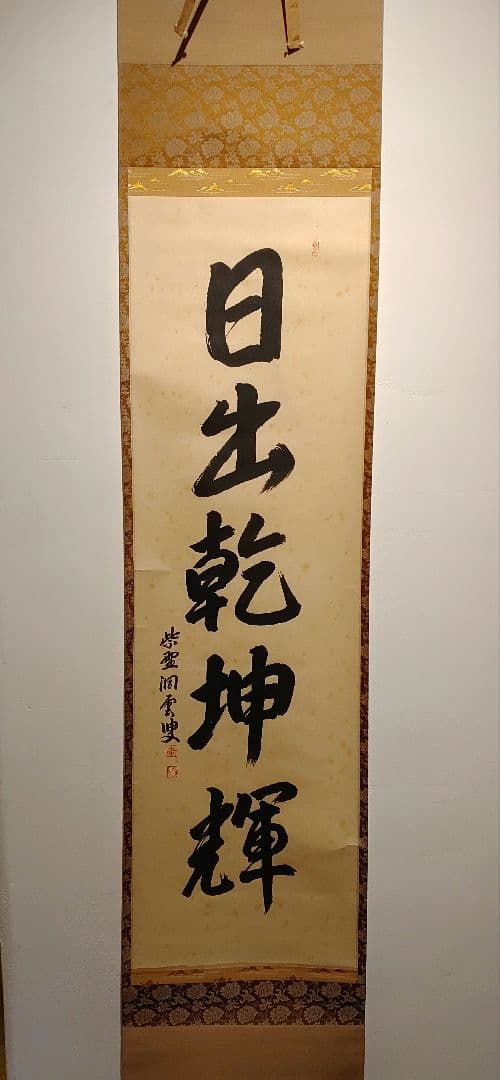 日出乾坤輝
紫野洞雲叟